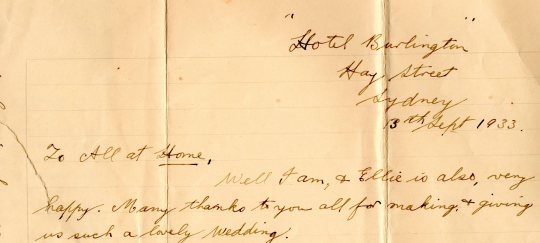 "
Hotel Burlington
Hay Street
Sydney
13th Sept 1933.
To All at Home,
Well I am, & Ellie is also, very
happy. Many thanks to you all for making & giving
us such a lovely Wedding.